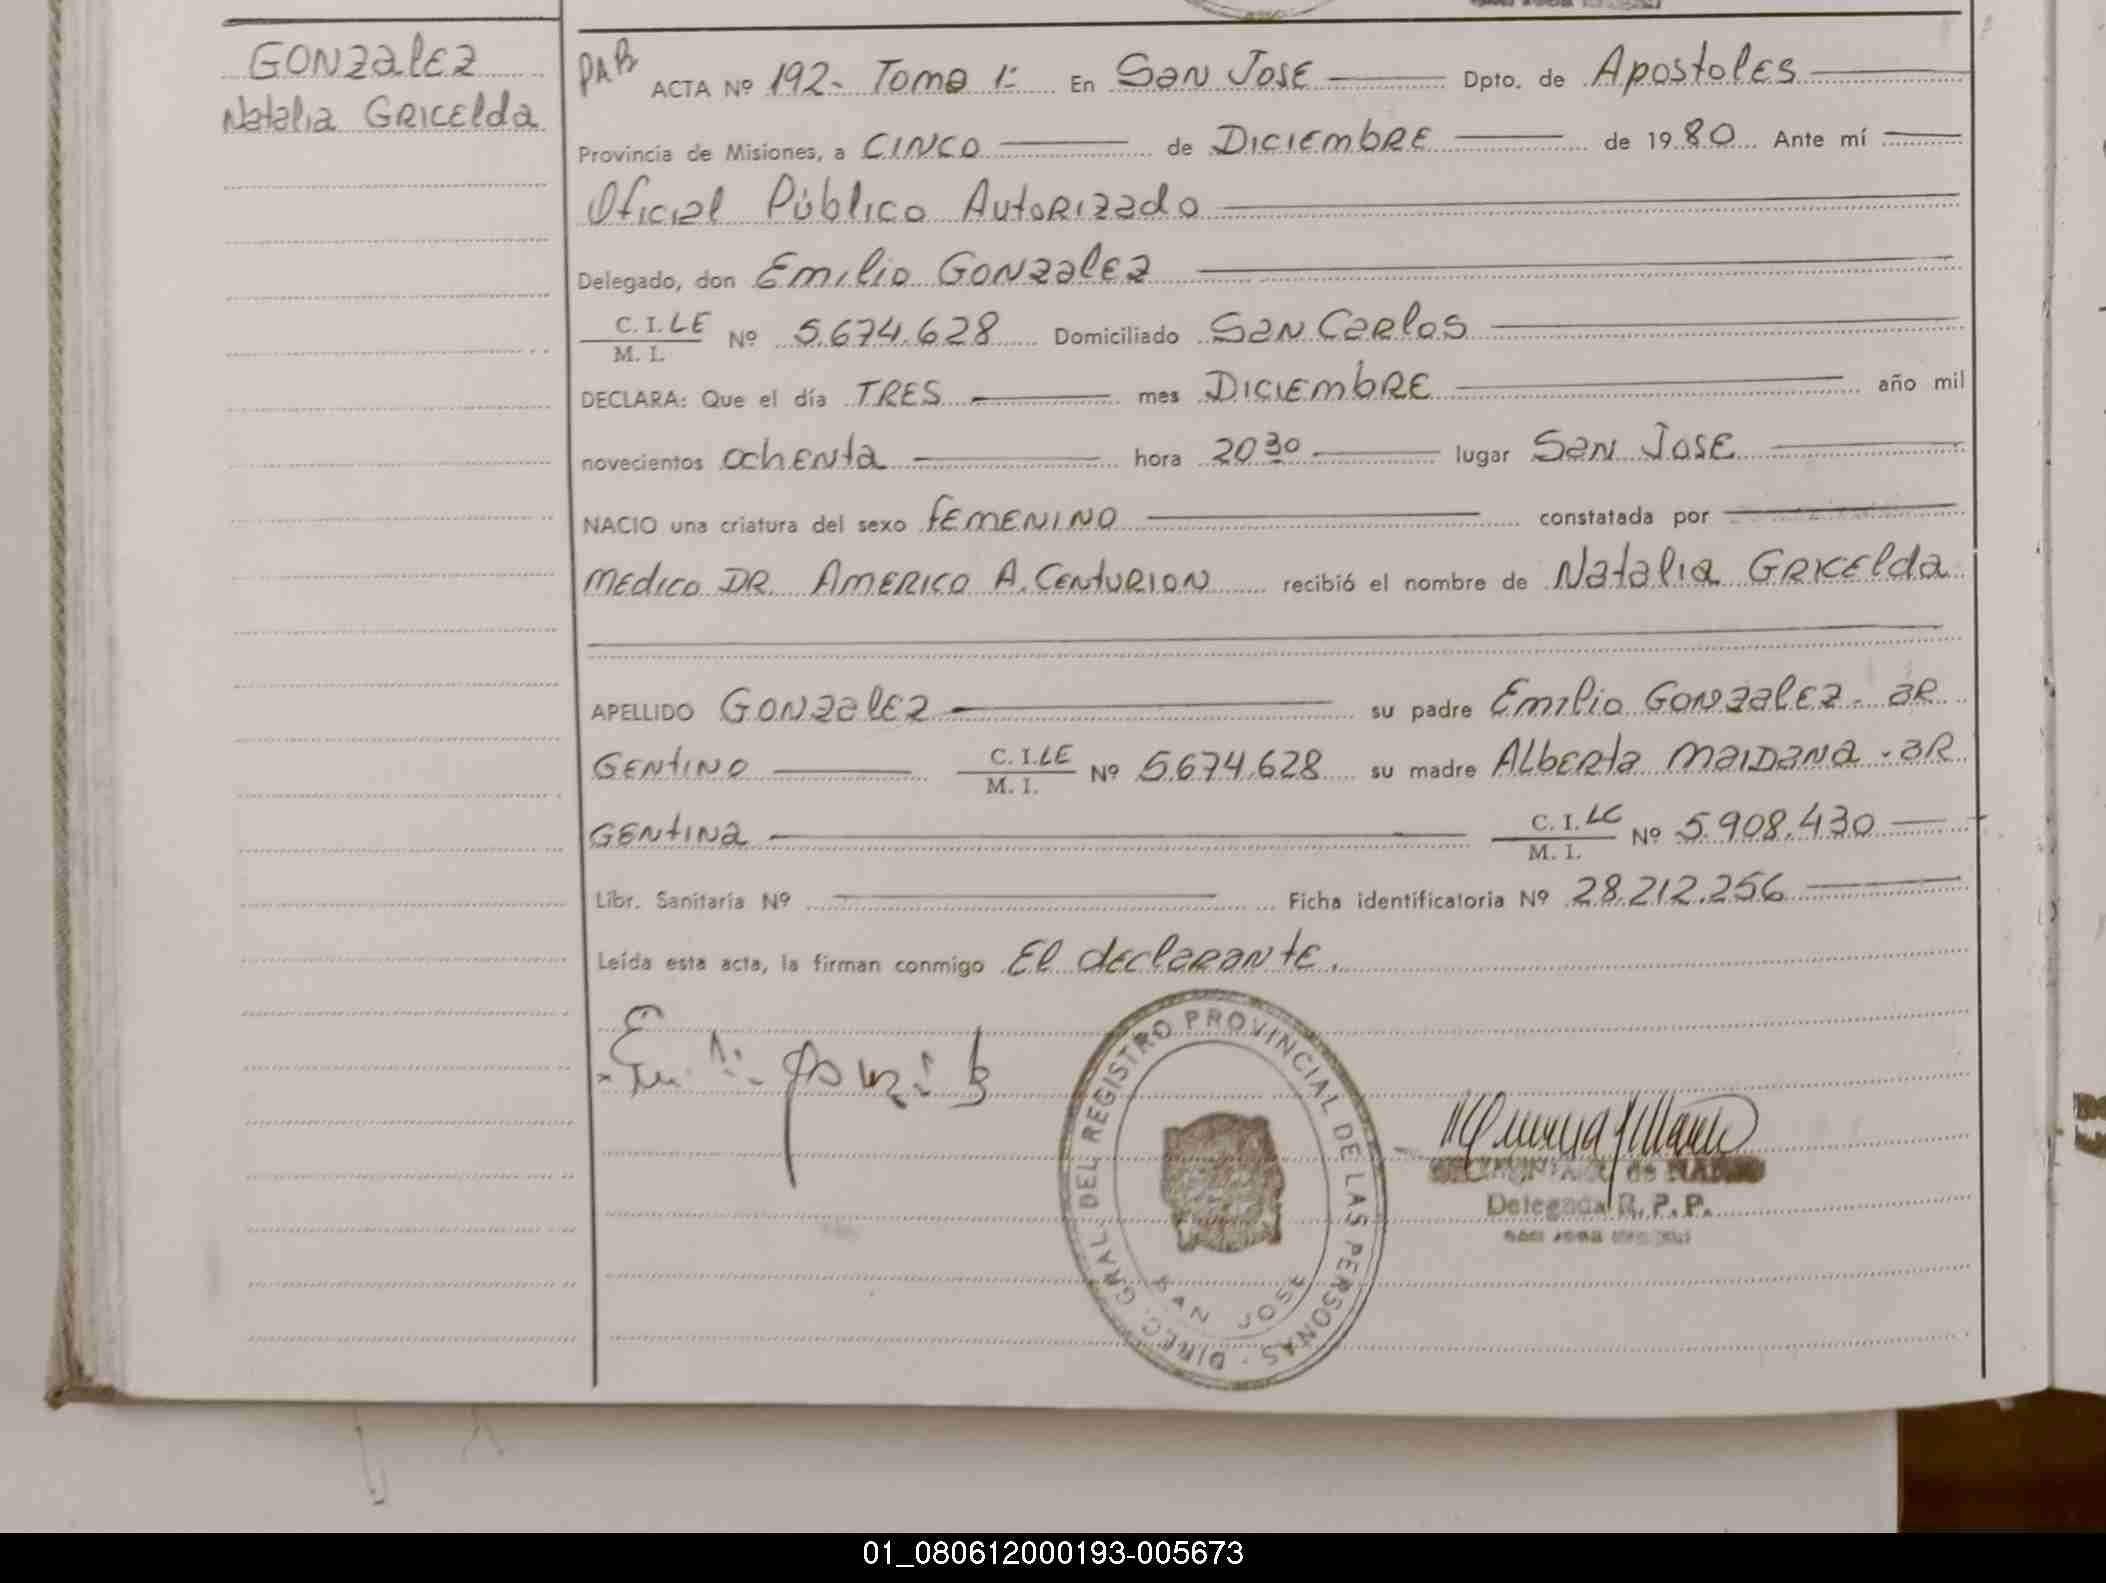 GONZalEZ
Natalia GRICElda
PAB ACTA Nº 192- Tomo 1: En SaN JOSE Dpto. de Apostoles
Provincia de Misiones, a CINCO de DICIEmbRE de 1980 Ante mí
Oficial Público AutoRIZado
Delegado, don Emilio GONZalEZ
C. I. LE
M. I.
Nº 5.674.628 Domiciliado SaN CaRlOS
DECLARA: Que el día TRES mes DICIEmbRE año mil
novecientos OchENta hora 20 30 lugar SaN JOSE
NACIO una criatura del sexo fEMENINO constatada por
MEdico DR. AMERICO A. CENtURION recibió el nombre de Natalia GRICElda
APELLIDO GONZalEZ su padre Emilio GONZalEZ- aR
GENtINO C. I. LE
M. I.
Nº 5.674.628 su madre AlbERta MaIDaNa - aR
GENtINa C. I. LC
M. I.
Nº 5.908.430
Libr. Sanitaria Nº Ficha identificatoria Nº 28.212.256
Leída esta acta, la firman conmigo El dEclaRaNtE.
DIREC. GRAL. DEL REGISTRO PROVINCIAL DE LAS PERSONAS
SAN JOSE
Delegada R. P. P.
01_080612000193-005673